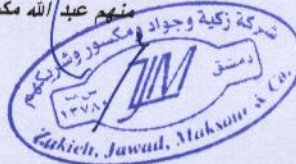 منهم عبد الله مك
شركة زكية وجواد ومكسور وشريكهم
دمشق
JM
ص.ب
١٣٧٨٠
Zakieh, Jawad, Maksour & Co.